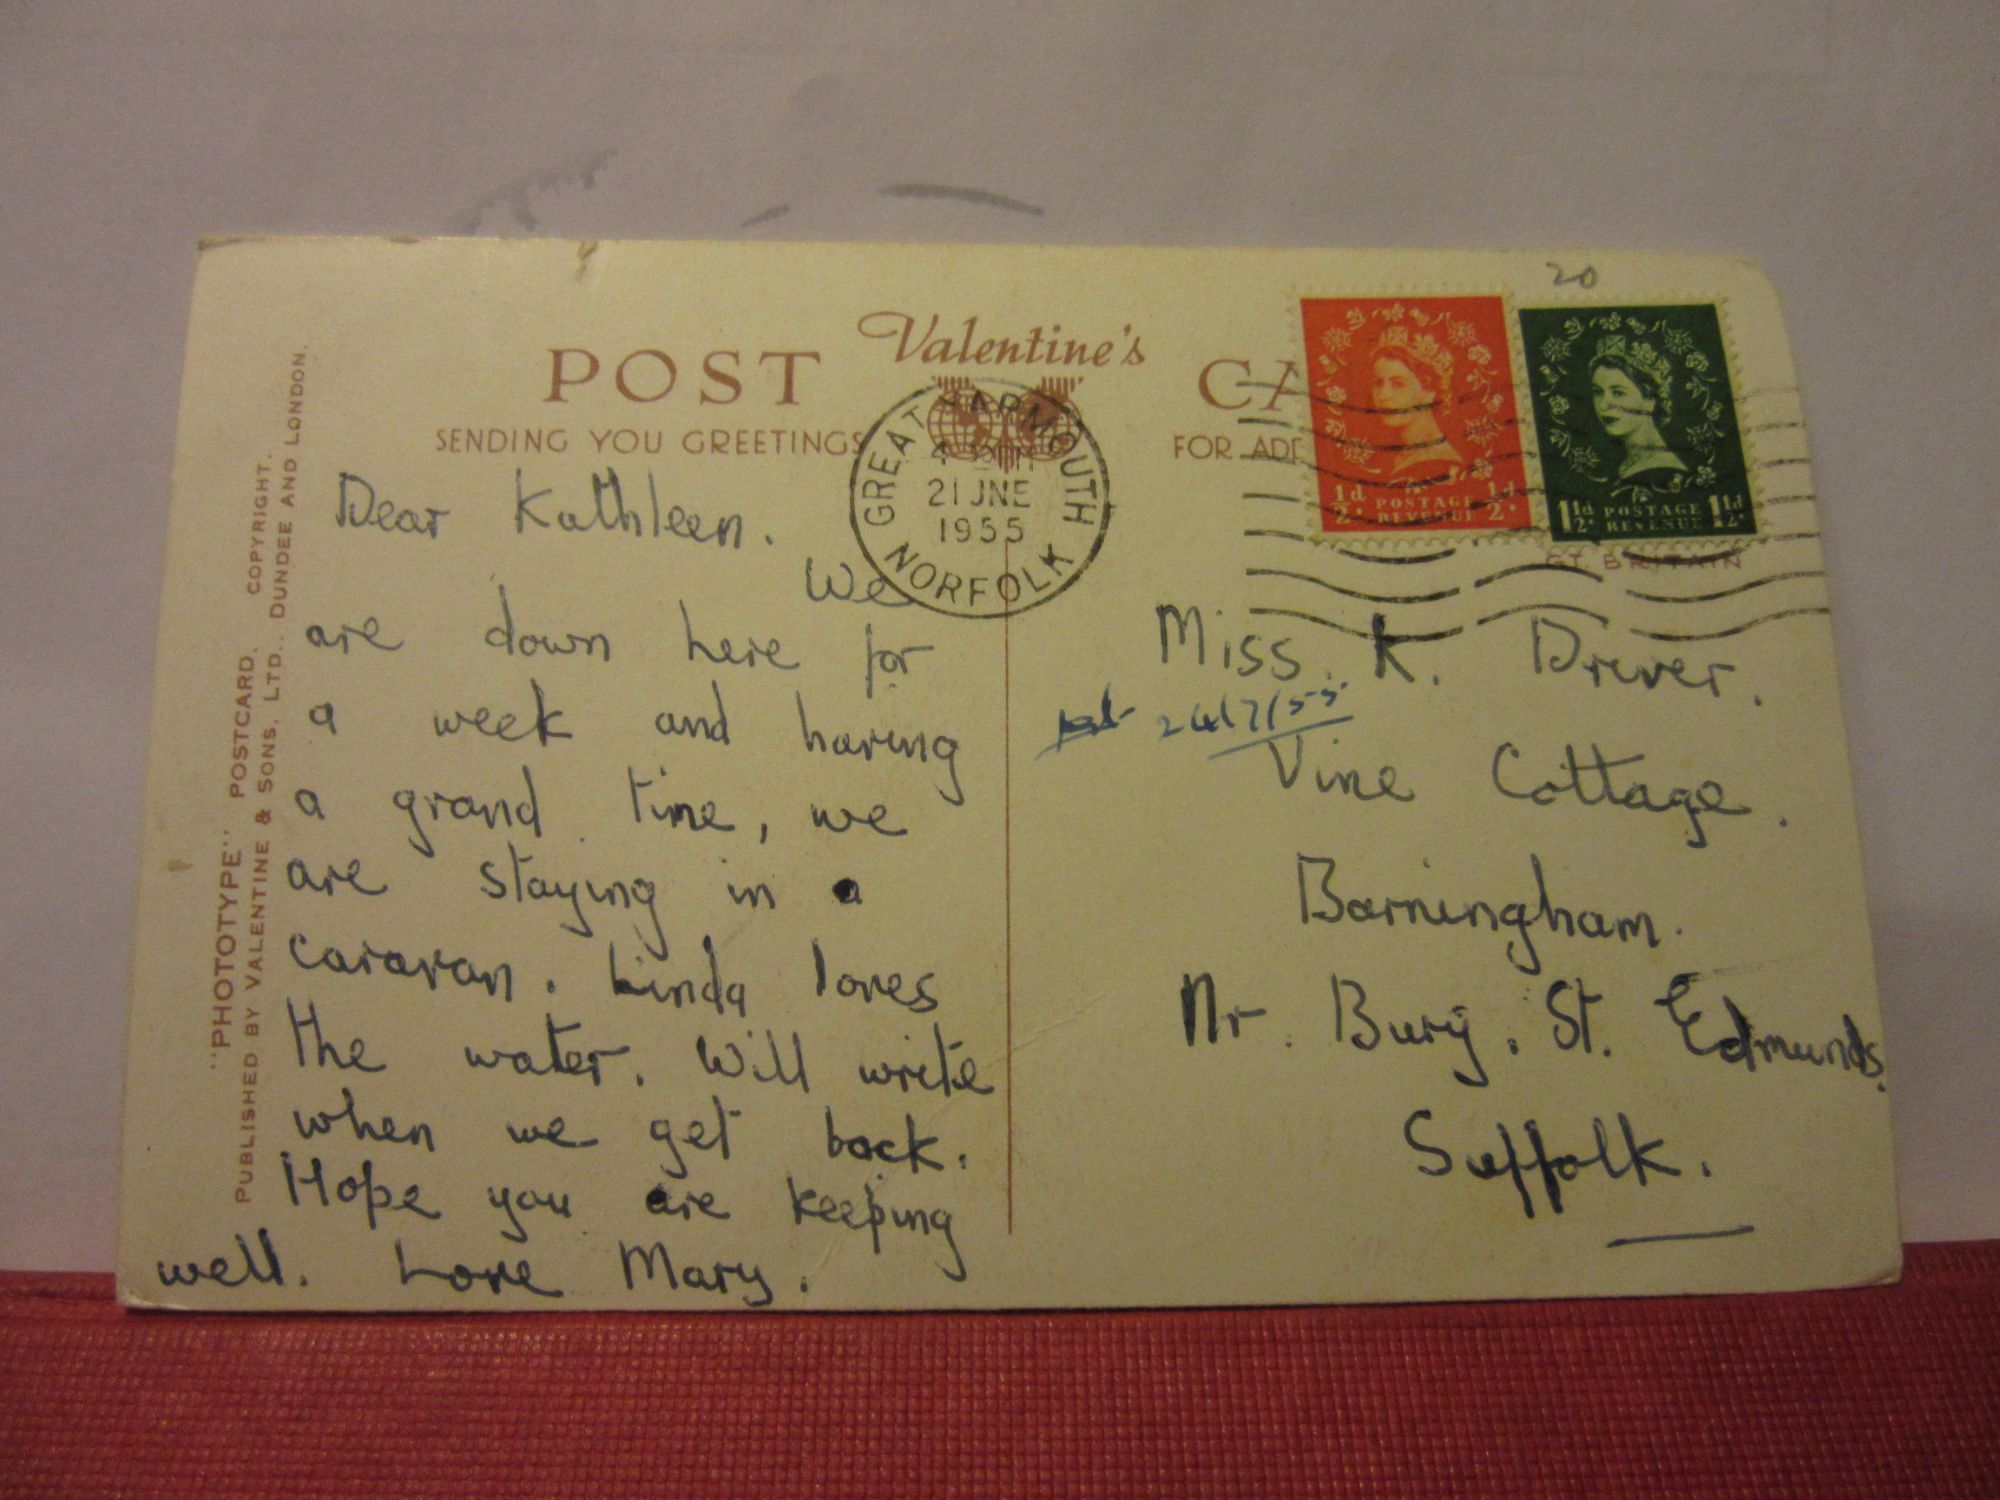 20
Valentine's
POST CA
SENDING YOU GREETINGS
FOR ADD
GREAT YARMOUTH
21 JNE
1955
NORFOLK
1/2d. POSTAGE REVENUE 1/2d.
1 1/2d. POSTAGE REVENUE 1 1/2d.
GT. BRITAIN
"PHOTOTYPE" POSTCARD. COPYRIGHT.
PUBLISHED BY VALENTINE & SONS, LTD., DUNDEE AND LONDON.
Dear Kathleen.
We
are down here for
a week and having
a grand time, we
are staying in a
caravan. Linda loves
the water. Will write
when we get back.
Hope you are keeping
well. Love Mary.
Miss. K. Drever.
24/7/55
Vine Cottage.
Barningham.
Nr. Bury. St. Edmunds.
Suffolk.